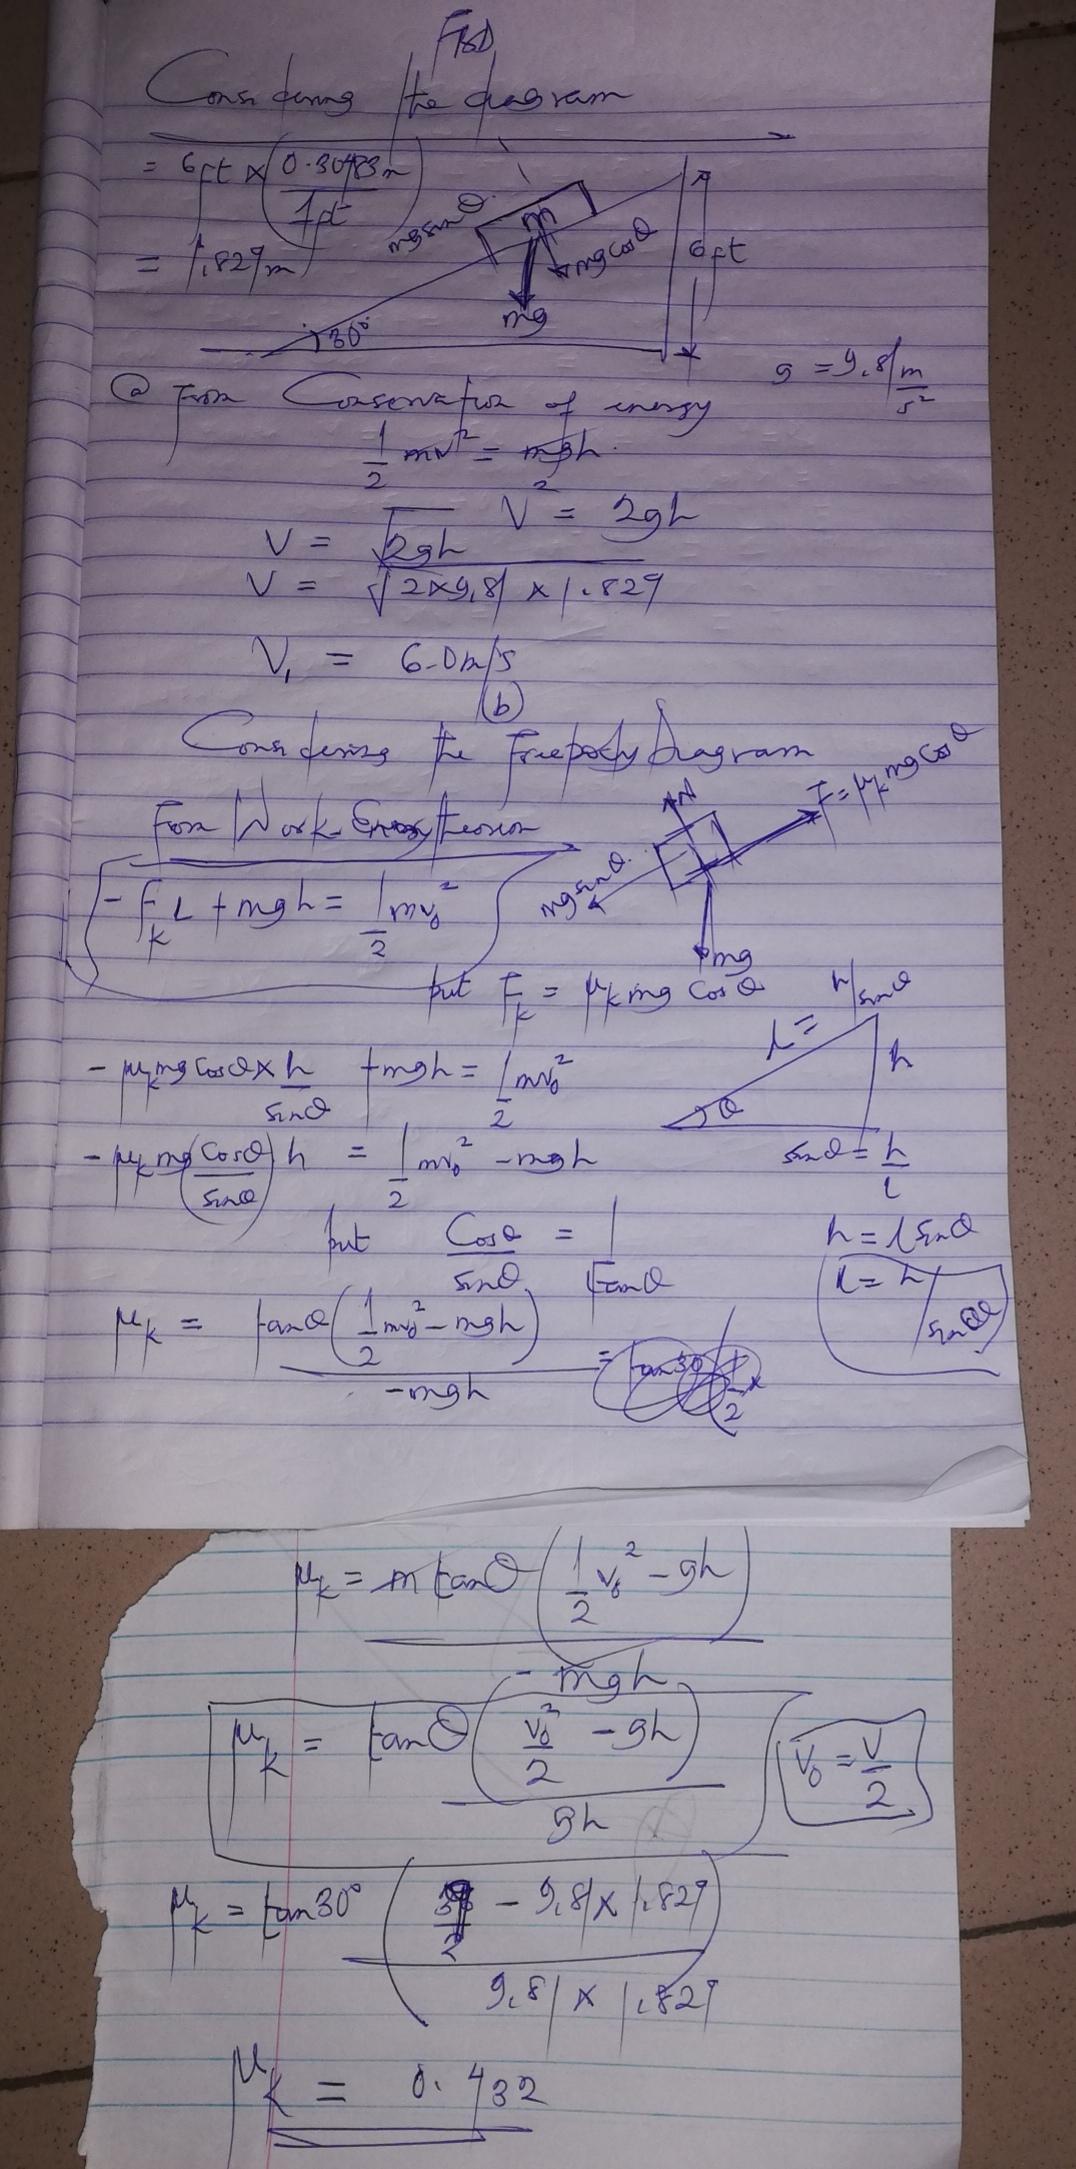 FBD
Considering the diagram
= 6ft × (0.3048m / 1ft)
= 1.829m
mgsinθ
m
mgcosθ
mg
6ft
30°
g = 9.81 m/s²
(a) From Conservation of energy
1/2 mv² = mgh.
V² = 2gh
V = √2gh
V = √2×9.81 × 1.829
V₁ = 6.0m/s
(b)
Considering the Freebody Diagram
N
F=μₖmgcosθ
mgsinθ
mg
From Work-Energy theorem
-FₖL + mgh = 1/2 mv₀²
put Fₖ = μₖmg Cosθ
L = h/sinθ
h
θ
-μₖmgCosθ× h/sinθ + mgh = 1/2 mv₀²
-μₖmg(Cosθ/sinθ) h = 1/2 mv₀² - mgh
sinθ = h/L
put Cosθ/sinθ = 1/Tanθ
h = Lsinθ
L = h/sinθ
μₖ = tanθ(1/2 mv₀² - mgh) / -mgh
μₖ = m tanθ (1/2 v₀² - gh) / - mgh
μₖ = tanθ (v₀²/2 - gh) / gh
V₀ = V/2
μₖ = tan30° ( /2 - 9.81 × 1.829 / 9.81 × 1.829)
μₖ = 0.432